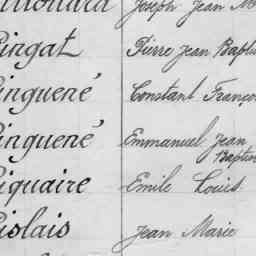 Joseph Jean M
Pingat Pierre Jean Baptis
inguené Constant Franço
inguené Emmanuel Jean
Baptis
iquaire Emile Louis
iolais Jean Marie